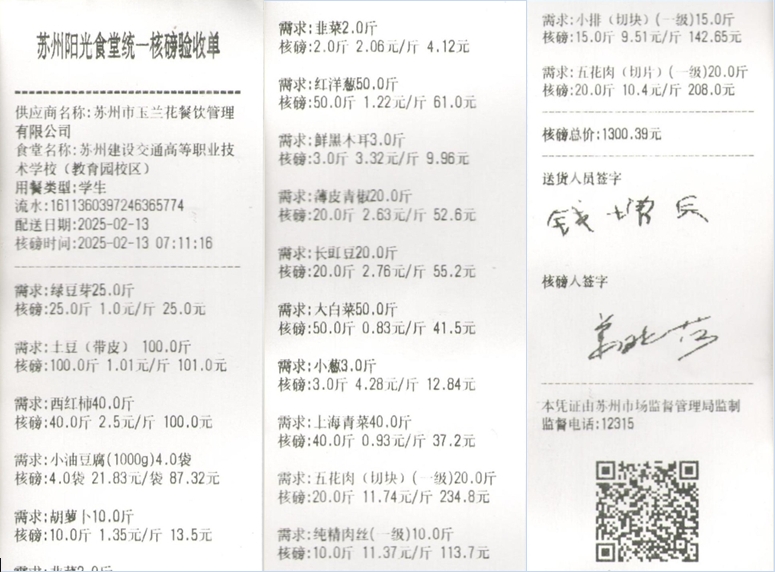 苏州阳光食堂统一核磅验收单
供应商名称:苏州市玉兰花餐饮管理
有限公司
食堂名称:苏州建设交通高等职业技
术学校（教育园校区）
用餐类型:学生
流水:1611360397246365774
配送日期:2025-02-13
核磅时间:2025-02-13 07:11:16
需求:绿豆芽25.0斤
核磅:25.0斤 1.0元/斤 25.0元
需求:土豆（带皮） 100.0斤
核磅:100.0斤 1.01元/斤 101.0元
需求:西红柿40.0斤
核磅:40.0斤 2.5元/斤 100.0元
需求:小油豆腐(1000g)4.0袋
核磅:4.0袋 21.83元/袋 87.32元
需求:胡萝卜10.0斤
核磅:10.0斤 1.35元/斤 13.5元
需求:韭菜2.0斤
核磅:2.0斤 2.06元/斤 4.12元
需求:红洋葱50.0斤
核磅:50.0斤 1.22元/斤 61.0元
需求:鲜黑木耳3.0斤
核磅:3.0斤 3.32元/斤 9.96元
需求:薄皮青椒20.0斤
核磅:20.0斤 2.63元/斤 52.6元
需求:长豇豆20.0斤
核磅:20.0斤 2.76元/斤 55.2元
需求:大白菜50.0斤
核磅:50.0斤 0.83元/斤 41.5元
需求:小葱3.0斤
核磅:3.0斤 4.28元/斤 12.84元
需求:上海青菜40.0斤
核磅:40.0斤 0.93元/斤 37.2元
需求:五花肉（切块）(一级)20.0斤
核磅:20.0斤 11.74元/斤 234.8元
需求:纯精肉丝(一级)10.0斤
核磅:10.0斤 11.37元/斤 113.7元
需求:小排（切块）(一级)15.0斤
核磅:15.0斤 9.51元/斤 142.65元
需求:五花肉（切片）(一级)20.0斤
核磅:20.0斤 10.4元/斤 208.0元
核磅总价:1300.39元
送货人员签字
核磅人签字
本凭证由苏州市场监督管理局监制
监督电话:12315